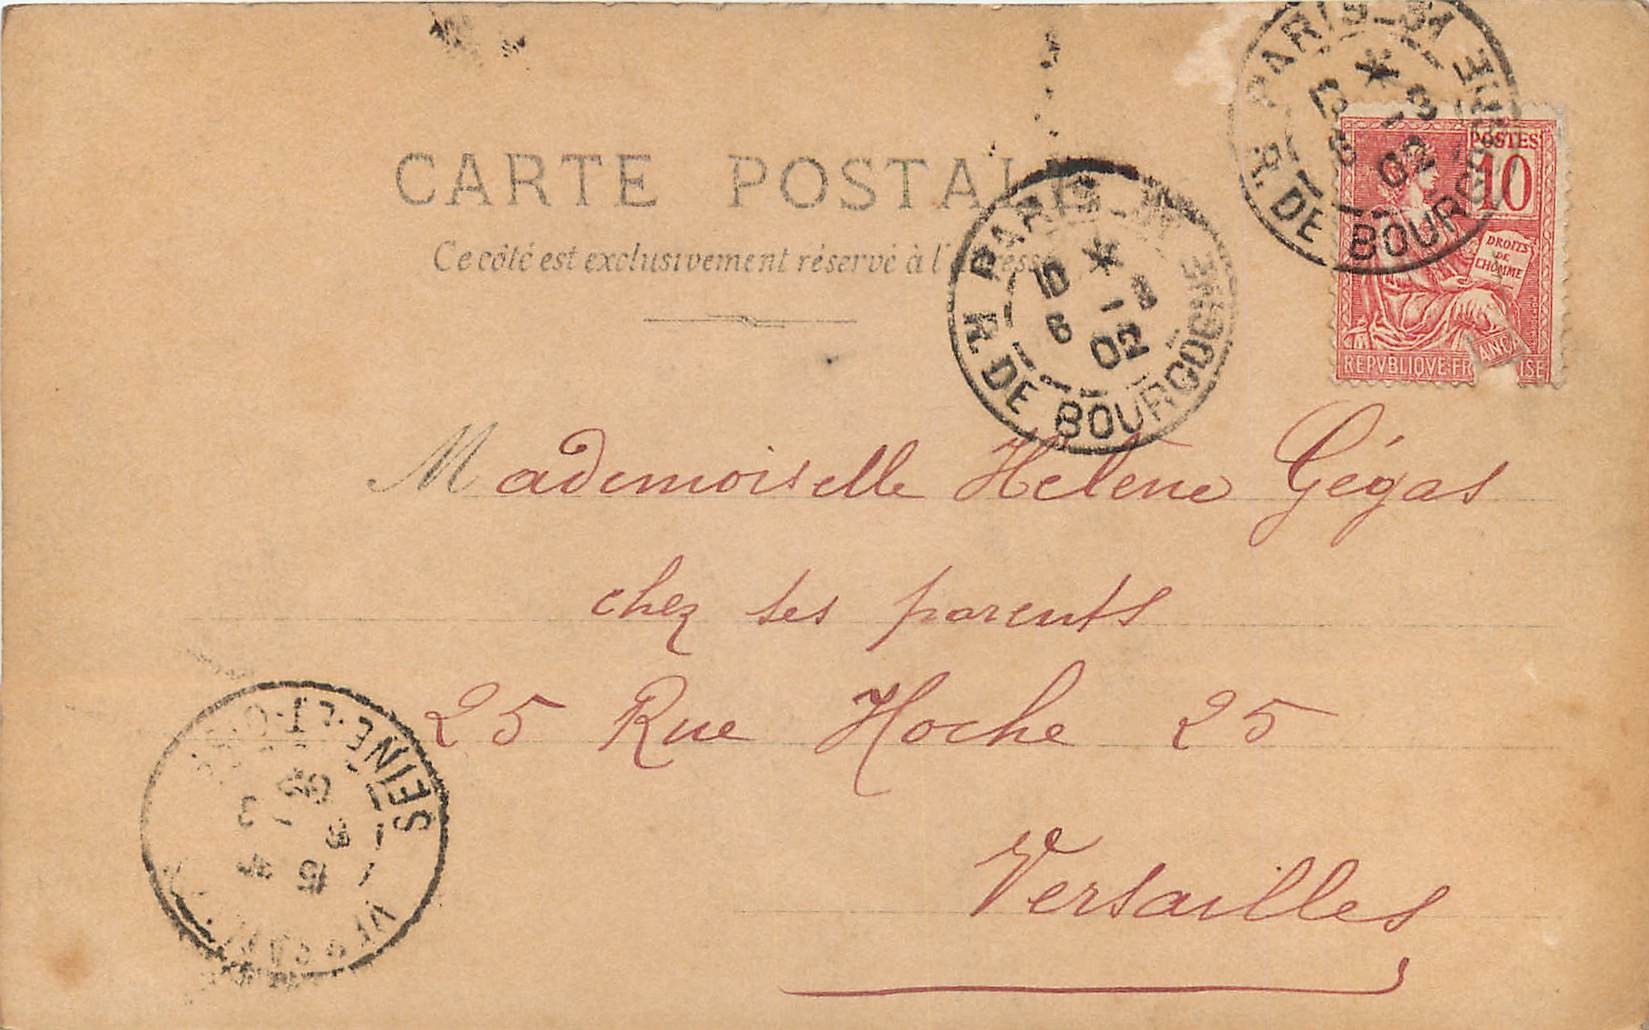 CARTE POSTALE
Ce côté est exclusivement réservé à l'adresse
PARIS_31
R. DE BOURGOGNE
6 -3
02
PARIS_31
R. DE BOURGOGNE
3
02
POSTES
10
DROITS
DE
L'HOMME
REPVBLIQVE FR ANÇAISE
Mademoiselle Helene Gégas
chez ses parents
25 Rue Hoche 25
Versailles
SEINE-ET-OISE
15
3
02